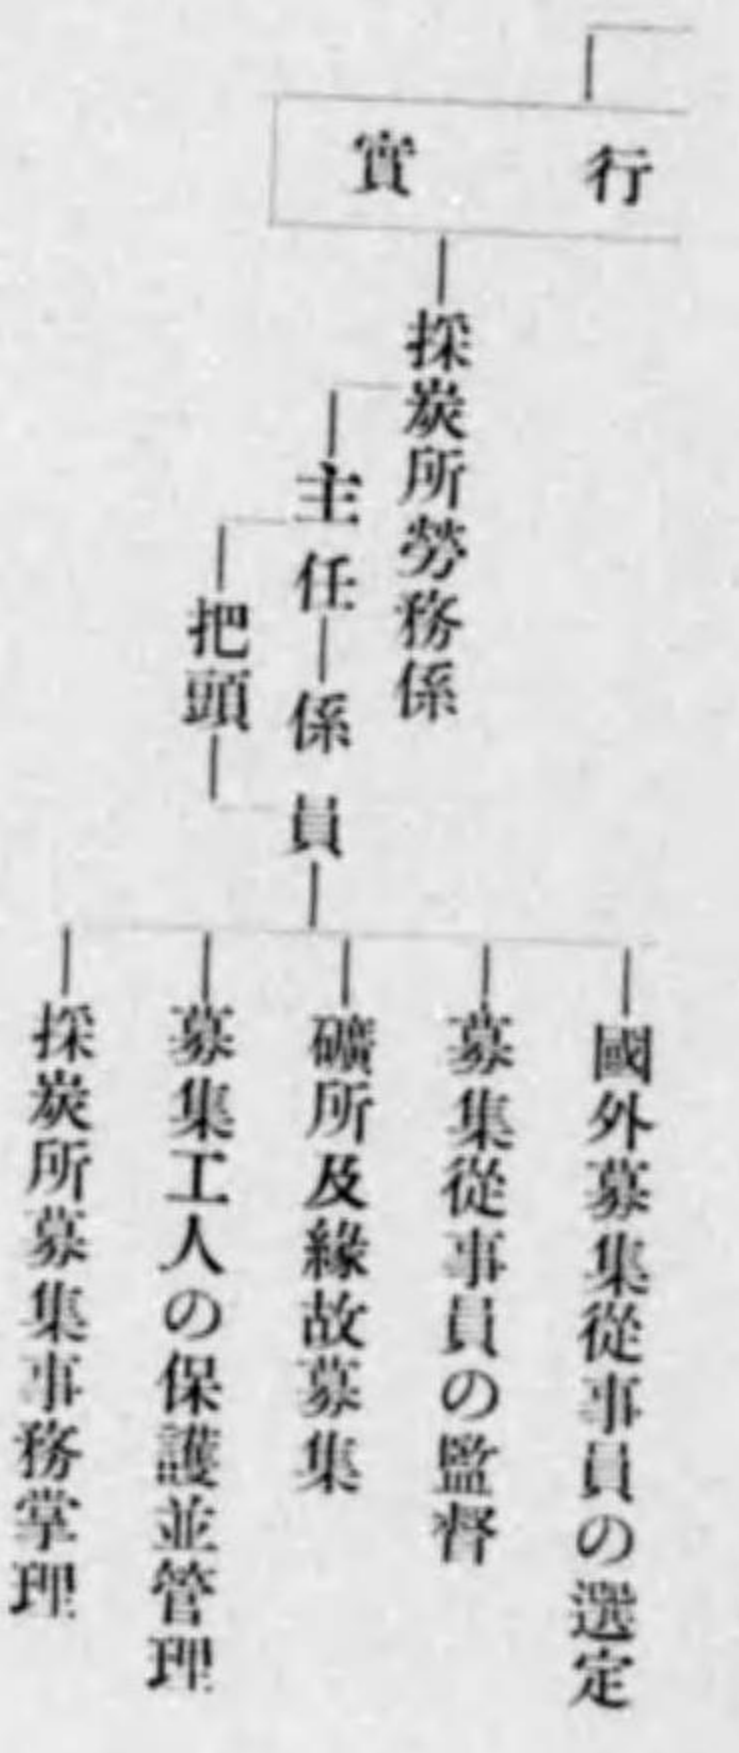 實行
採炭所勞務係
主任
係員
把頭
國外募集從事員の選定
募集從事員の監督
礦所及緣故募集
募集工人の保護並管理
採炭所募集事務掌理